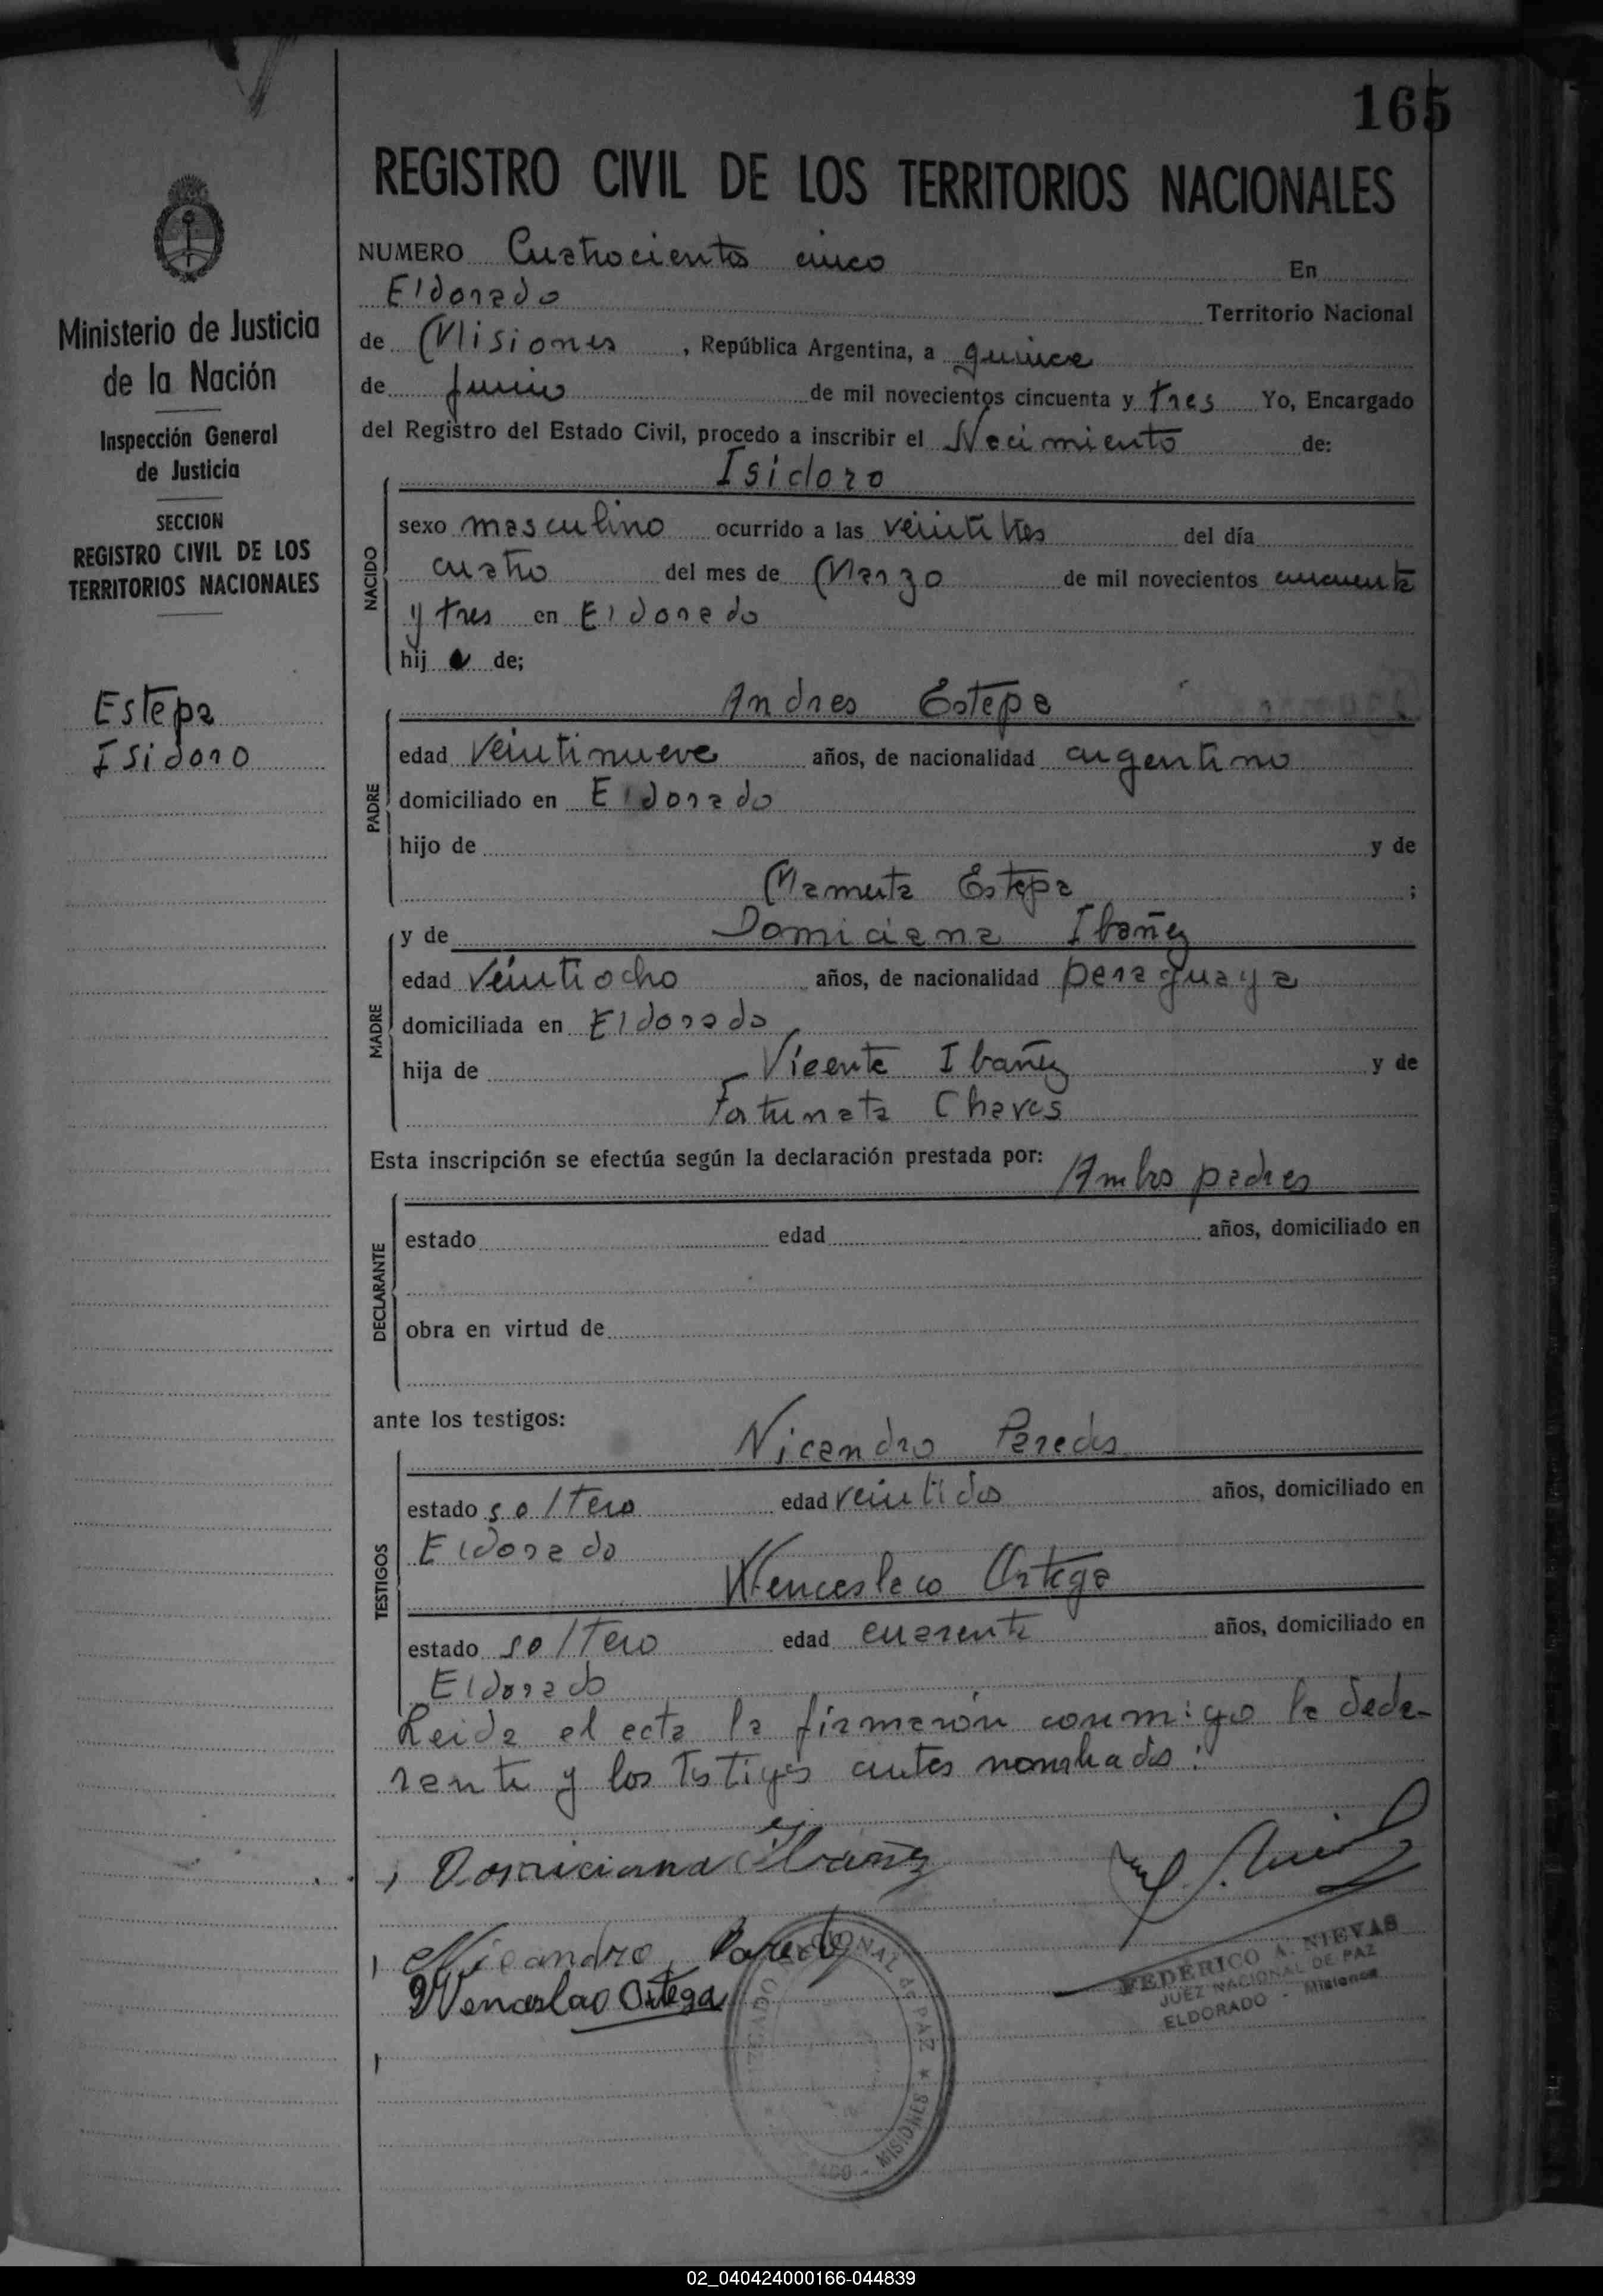 165
REGISTRO CIVIL DE LOS TERRITORIOS NACIONALES
Ministerio de Justicia
de la Nación
Inspección General
de Justicia
SECCION
REGISTRO CIVIL DE LOS
TERRITORIOS NACIONALES
Estepa
Isidoro
NUMERO Cuatrocientos cinco En
Eldorado Territorio Nacional
de Misiones, República Argentina, a quince
de junio de mil novecientos cincuenta y tres Yo, Encargado
del Registro del Estado Civil, procedo a inscribir el Nacimiento de:
Isidoro
NACIDO
sexo masculino ocurrido a las veintitres del día
cuatro del mes de Marzo de mil novecientos cincuenta
y tres en Eldorado
hij o de;
Andres Estepa
PADRE
edad veintinueve años, de nacionalidad argentino
domiciliado en Eldorado
hijo de y de
Estepa ;
y de Domiciana Ibañez
MADRE
edad veintiocho años, de nacionalidad paraguaya
domiciliada en Eldorado
hija de Vicente Ibañez y de
Fortunata Chaves
Esta inscripción se efectúa según la declaración prestada por:
Ambos padres
DECLARANTE
estado edad años, domiciliado en
obra en virtud de
ante los testigos:
Nicandro Paredes
TESTIGOS
estado soltero edad veintidos años, domiciliado en
Eldorado
Wenceslaco Ortega
estado soltero edad cuarenta años, domiciliado en
Eldorado
Leida el acta la firmarón conmigo la decla-
rante y los testigos antes nombrados:
Domiciana Ibañez
Nicandro Paredes
Wenceslao Ortega
FEDERICO A. NIEVAS
JUEZ NACIONAL DE PAZ
ELDORADO - Misiones
JUZGADO NACIONAL de PAZ * MISIONES
02_040424000166-044839